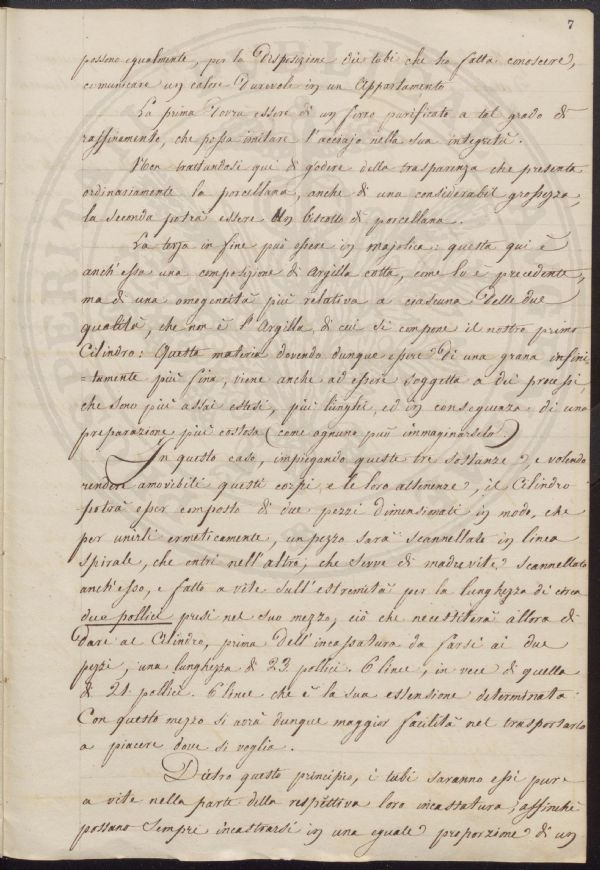 7
possono egualmente, per la disposizione dei tubi che ho fatta conoscere,
comunicare un calore durevole in un Appartamento
La prima dovrà essere di un ferro purificato a tal grado di
raffinamento, che possa imitare l'acciajo nella sua integrità.
Non trattandosi quì di godere della trasparenza che presenta
ordinariamente la porcellana, anche di una considerabil grossezza,
la seconda potrà essere un biscotto di porcellana.
La terza in fine può essere in majolica: questa qui è
anch'essa una composizione di Argilla cotta, come lo è precedente,
ma di una omogeneità più relativa a ciascuna delle due
qualità, che non è l'Argilla di cui si compone il nostro primo
Cilindro: Questa materia dovendo dunque essere di una grana infini
=tamente più fina, viene anche ad essere soggetta a dei processi,
che sono più assai estesi, più lunghi, ed in conseguenza di una
preparazione più costosa (come ognuno può immaginarselo)
In questo caso, impiegando queste tre sostanze, e volendo
rendere amovibili questi corpi e le loro attenenze, il Cilindro
potrà esser composto di due pezzi dimensionati in modo, che
per unirli ermeticamente, un pezzo sarà scannellato in linea
spirale, che entri nell'altro; che serve di madrevite scannellato
anch'esso, e fatto a vite sull'estremità per la lunghezza di circa
due pollici presi nel suo mezzo, ciò che necessiterà allora di
dare al Cilindro, prima dell'incassatura da farsi ai due
pezzi, una lunghezza di 23. pollici. 6 linee, in vece di quella
di 21. pollici. 6 linee che è la sua estensione determinata:
Con questo mezzo si avrà dunque maggior facilità nel trasportarlo
a piacere dove si voglia.
Dietro questo principio, i tubi saranno essi pure
a vite nella parte della respettiva loro incastratura, affinchè
possano sempre incastrarsi in una eguale proporzione di un